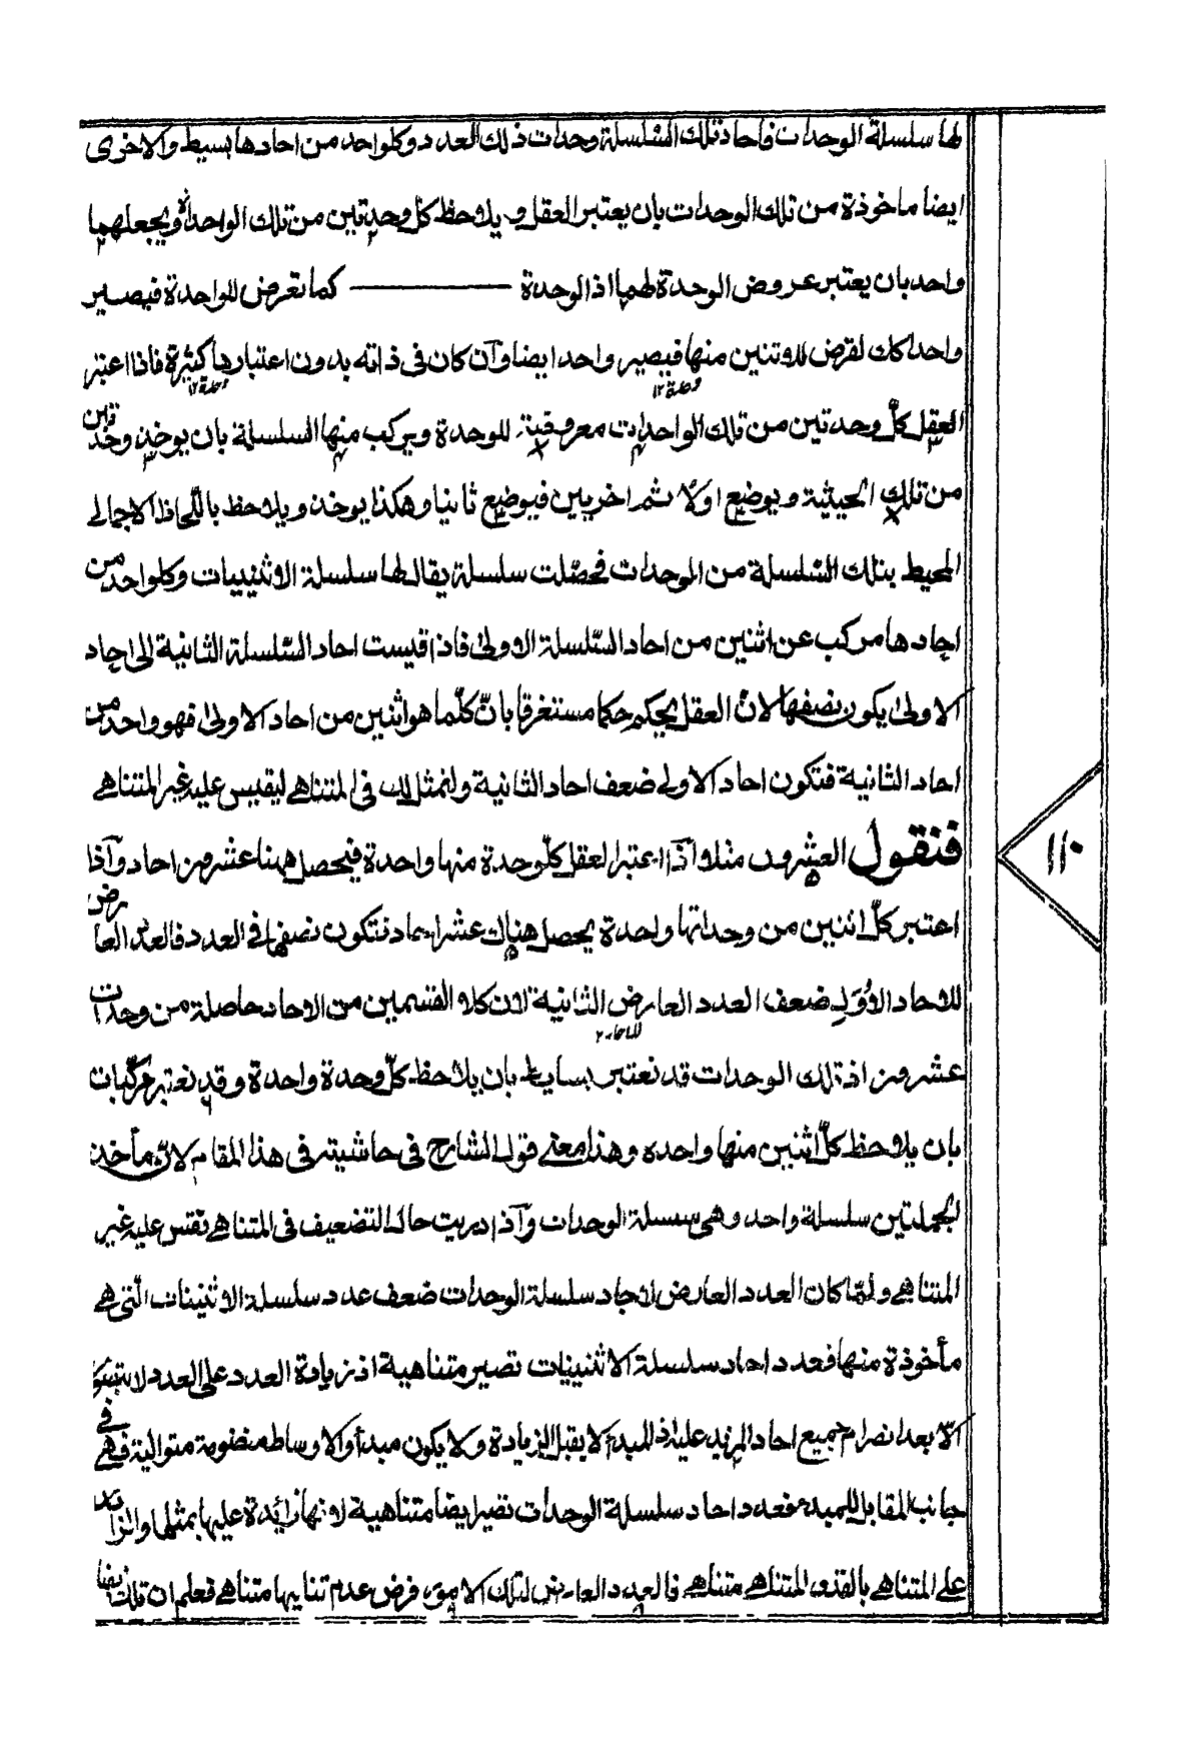 لها سلسلة الوحدات فاحاد تلك السّلسلة وحدات ذلك العدد وكلواحد من احادها بسيط والاخرى
ايضا ماخوذة من تلك الوحدات بان يعتبر العقل و يلاحظ كل وحدتين من تلك الواحداة ويجعلهما
واحد بان يعتبر عروض الوحدة لهما اذ الوحدة كما تعرض للواحدة فيصير
واحدا كك لقرض للاوتنين منها فيصير واحدا ايضا وآن كان فى ذاته بدون اعتبارها كثرة فاذا اعتبر
وحدة١٢ وحدة١٢
العقل كلّ وحدتين من تلك الواحدات معروضة للوحدة ويركب منها السلسلة بان يوخذ وحدتين
من تلك الحيثية و يوضع اولاً ثم اخريين فيوضع ثانيا وهكذا يوخذ و يلاحظ باللّحاذ الاجمالى
المحيط بتلك السّلسلة من الموحدات فحصّلت سلسلة يقال لها سلسلة الاثنيبيات وكلواحد من
احادها مركب عن اثنين من احاد السّلسلة الاولى فاذا قيست احاد السّلسلة الثانية الى احاد
الاولى يكون نصفها لانّ العقل يحكم حكما مستغرقا بانّ كلّما هو اثنين من احاد الاولى فهو واحد من
احاد الثانية فتكون احاد الاولى ضعف احاد الثانية ولنمثل لك فى المتناهى ليقيس عليه غير المتناهى
فنقول العشرون مثلا اذا اعتبر العقل كلّ وحدة منها واحدة فيحصل ههنا عشرون احاد وآذا
اعتبر كلّ اثنين من وحداتها واحدة يحصل هناك عشر احاد فتكون نصفها فى العدد فالعدد العارض
للاحاد الاُوَل ضعف العدد العارض الثانية لان كلا القسمين من الاحاد حاصلة من وحدات
للاحاد٢
عشرون اذ تلك الوحدات قد تعتبر بسايط بان يلاحظ كلّ وحدة واحدة و قد تعتبر مركبات
بان يلاحظ كلّ اثنين منها واحده وهذا معنى قول الشارح فى حاشيته فى هذا المقام لانّ مأخذ
الجملتين سلسلة واحد وهى سسسلة الوحدات وآذا دريت حال التضعيف فى المتناهى تقس عليه غير
المتناهى ولمّا كان العدد العارض لاحاد سلسلة الوحدات ضعف عدد سلسلة الاثنينات الّتى هى
مأخوذة منها فعدد احاد سلسلة الاثنينيات تصير متناهية اذ زيادة العدد على العدد لا تتصور
الاّ بعد انصرام جميع احاد المزيد عليه اذ المبدء لا يقبل الزيادة ولا يكون مبدأ والاوساط منضومة متوالية فهى فى
جانب المقابل للمبدء فعدد احاد سلسلة الوحدات تصير ايضا متناهية لانها زائدة عليها بمثلها والزائد
على المتناهى بالقدر المتناهى متناهى فالعدد العارض لتلك الامور فرض عدم تناهيها متناهى فعلم ان تلك ايضا
١١٠